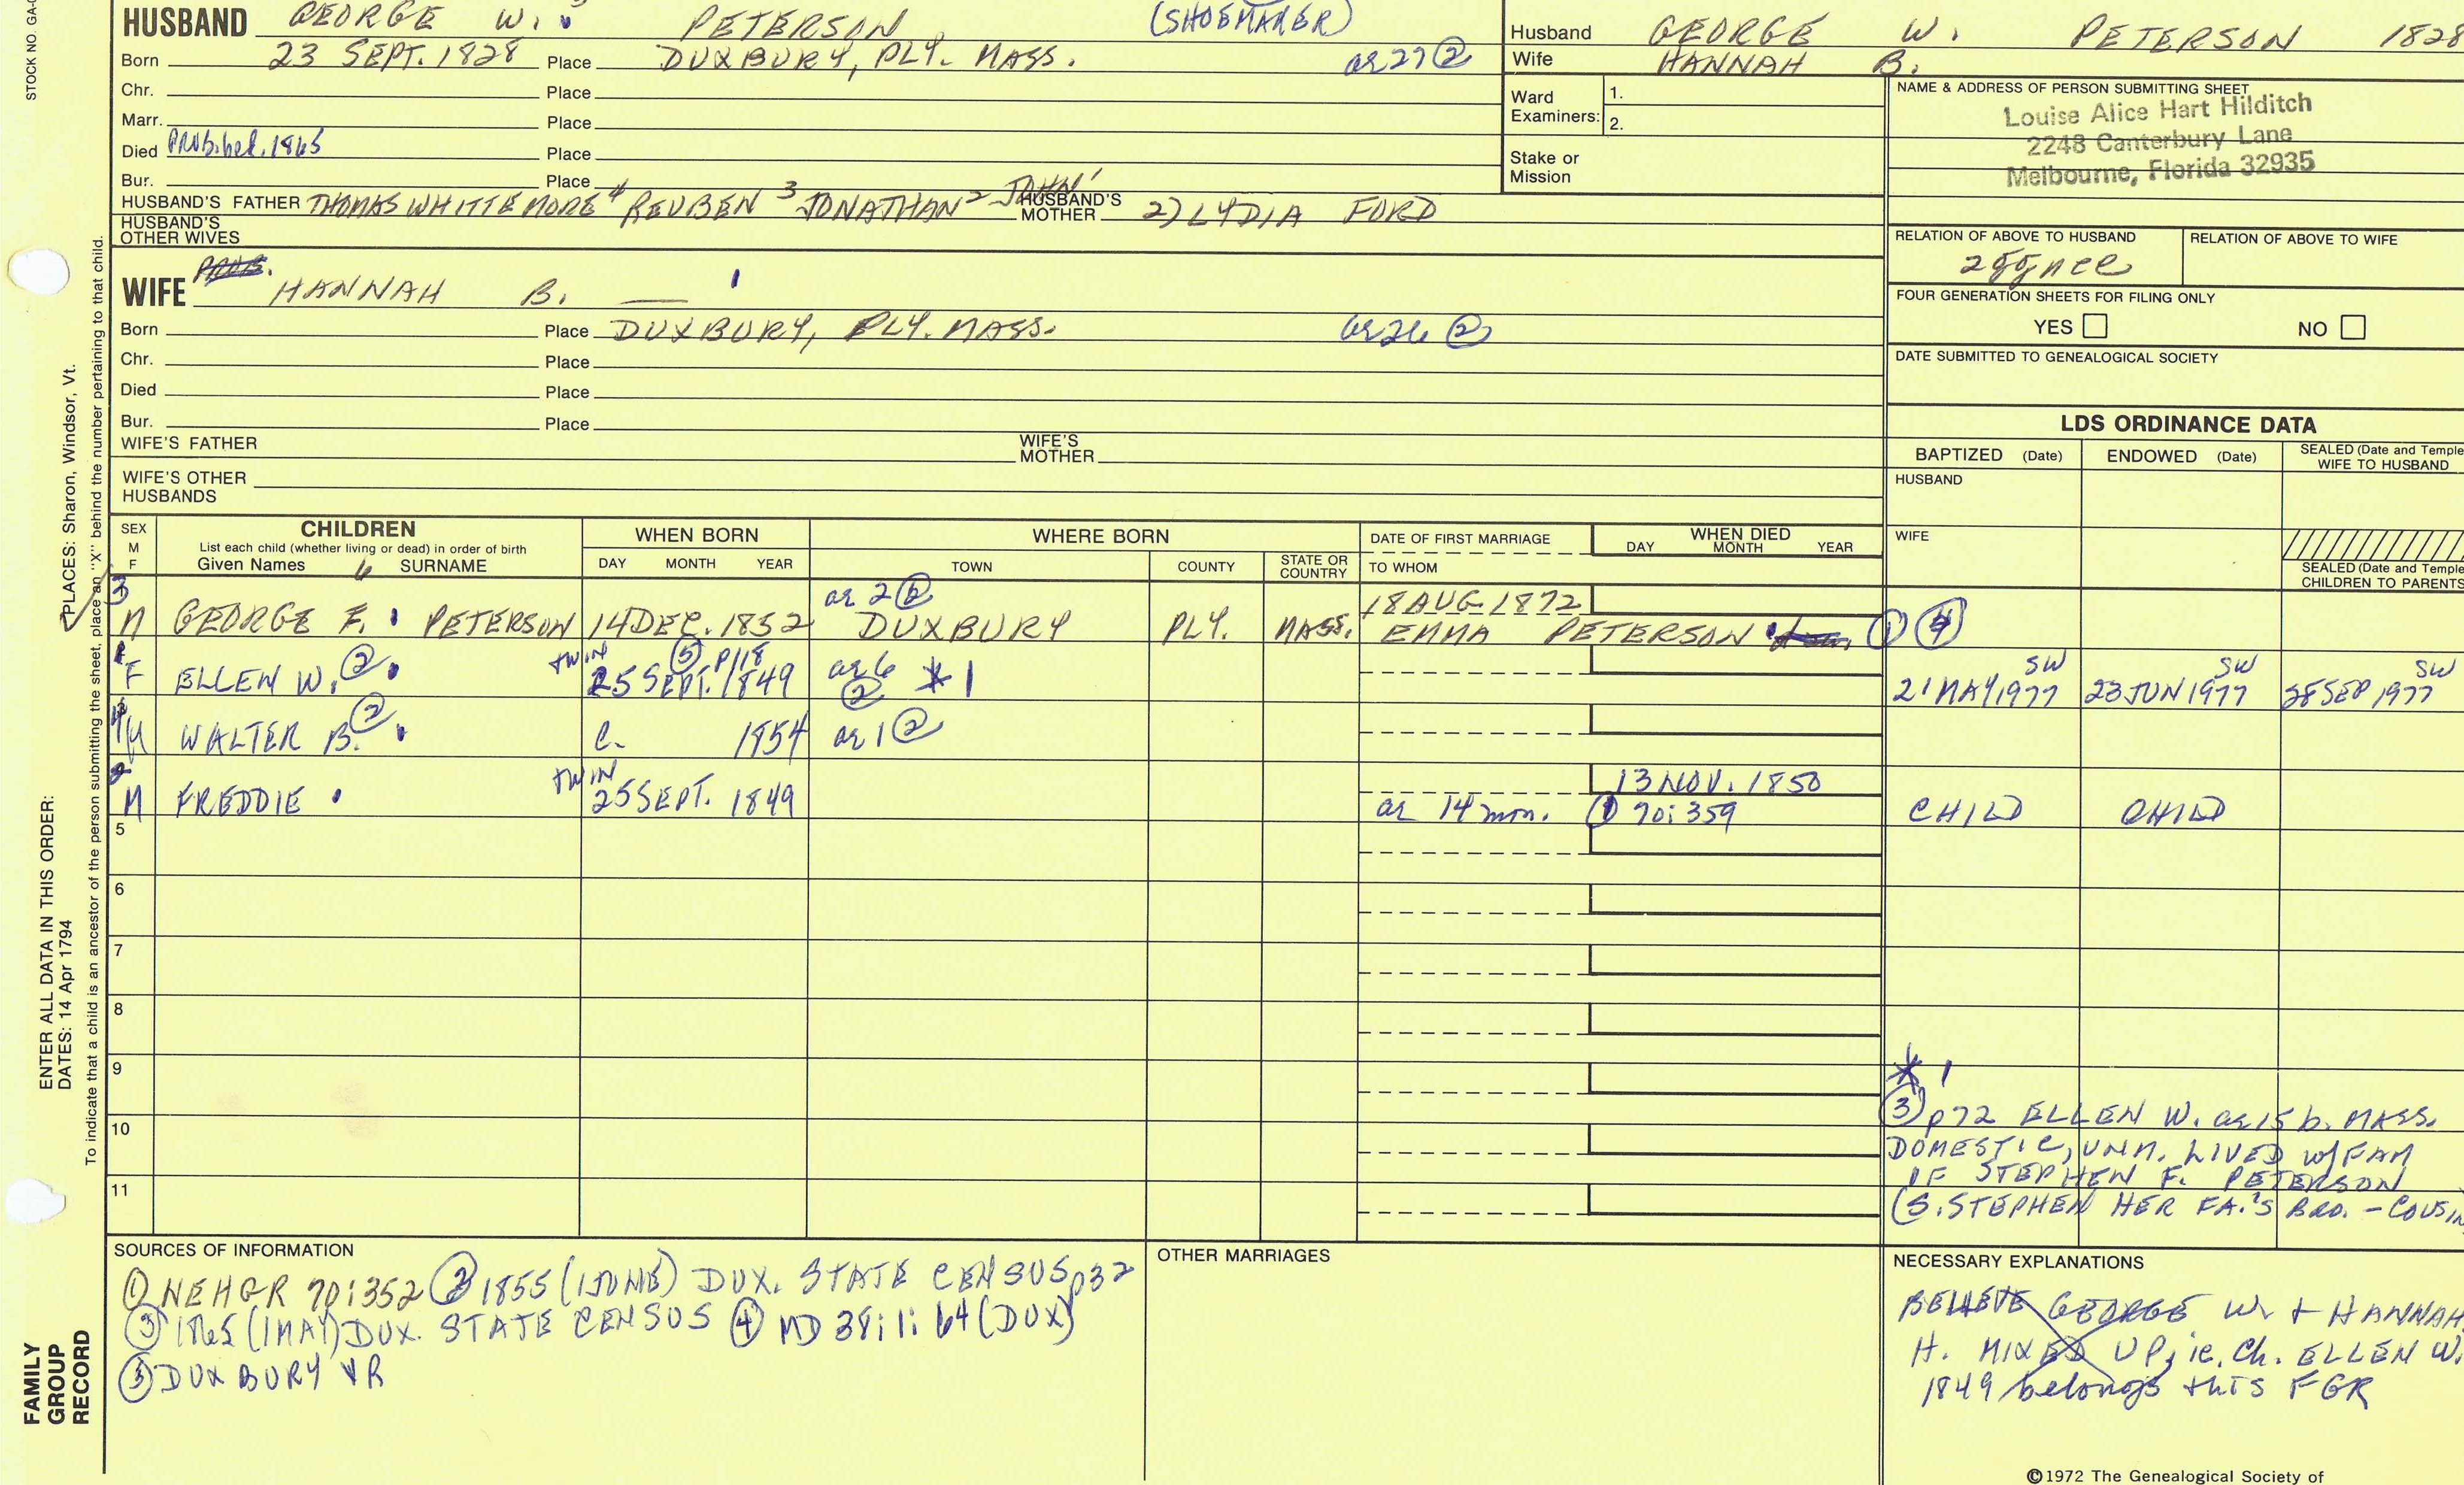 STOCK NO. GA-
HUSBAND GEORGE W. PETERSON (SHOEMAKER)
Born 23 SEPT. 1828 Place DUXBURY, PLY. MASS. ae 27 ②
Chr. Place
Marr. Place
Died PROB. bef. 1865 Place
Bur. Place
HUSBAND'S FATHER THOMAS WHITTEMORE 4 REUBEN 3 JONATHAN 2 JOHN 1 HUSBAND'S MOTHER 2) LYDIA FORD
HUSBAND'S OTHER WIVES
PROB.
WIFE HANNAH B. — 1
Born Place DUXBURY, PLY. MASS. ae 26 ②
Chr. Place
Died Place
Bur. Place
WIFE'S FATHER WIFE'S MOTHER
WIFE'S OTHER HUSBANDS
Husband GEORGE W. PETERSON 1828
Wife HANNAH B.
Ward Examiners: 1.
2.
Stake or Mission
NAME & ADDRESS OF PERSON SUBMITTING SHEET
Louise Alice Hart Hilditch
2248 Canterbury Lane
Melbourne, Florida 32935
RELATION OF ABOVE TO HUSBAND RELATION OF ABOVE TO WIFE
2ggnee
FOUR GENERATION SHEETS FOR FILING ONLY
YES NO
DATE SUBMITTED TO GENEALOGICAL SOCIETY
LDS ORDINANCE DATA
BAPTIZED (Date) ENDOWED (Date) SEALED (Date and Temple
WIFE TO HUSBAND
HUSBAND
WIFE
SEALED (Date and Temple
CHILDREN TO PARENTS
SEX M F CHILDREN WHEN BORN WHERE BORN DATE OF FIRST MARRIAGE WHEN DIED
List each child (whether living or dead) in order of birth
Given Names SURNAME DAY MONTH YEAR TOWN COUNTY STATE OR COUNTRY TO WHOM DAY MONTH YEAR
3 ae 2 ② 18 AUG 1872
M GEORGE F. PETERSON 14 DEC. 1852 DUXBURY PLY. MASS. EMMA PETERSON ① ④
TWIN ⑤ p118 ae 6 SW SW SW
F ELLEN W. ② 25 SEPT. 1849 ② *1 21 MAY 1977 23 JUN 1977 28 SEP 1977
M WALTER B. ② c. 1854 ae 1 ②
2 TWIN 13 NOV. 1850
M FREDDIE 25 SEPT. 1849 ae 14 mon. ① 70:359 CHILD CHILD
5
6
7
8
9
10
11
*1
③ p72 ELLEN W. ae 15 b. MASS.
DOMESTIC, UNM. LIVED w/ FAM
OF STEPHEN F. PETERSON
(S. STEPHEN HER FA.'S BRO. – COUSIN
SOURCES OF INFORMATION
① NEHGR 70:352 ② 1855 (1 JUNE) DUX. STATE CENSUS p32
③ 1865 (1 MAY) DUX. STATE CENSUS ④ MD 38:1:64 (DUX)
⑤ DUXBURY VR
OTHER MARRIAGES
NECESSARY EXPLANATIONS
BELIEVE GEORGE W. + HANNAH
H. MIXED UP, ie. Ch. ELLEN W.
1849 belongs this FGR
©1972 The Genealogical Society of
ENTER ALL DATA IN THIS ORDER:
DATES: 14 Apr 1794
PLACES: Sharon, Windsor, Vt.
To indicate that a child is an ancestor of the person submitting the sheet, place an "X" behind the number pertaining to that child.
FAMILY
GROUP
RECORD